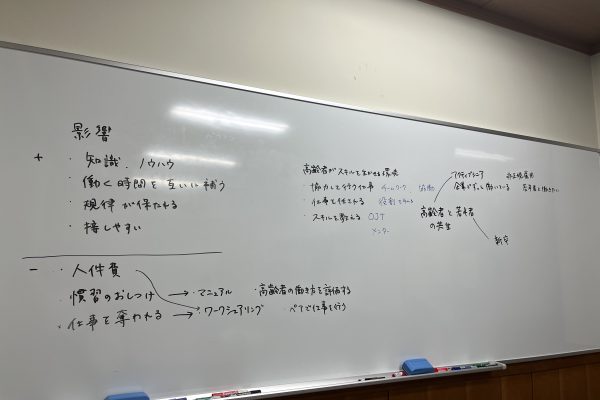 影響
+ ・知識、ノウハウ
・働く時間を互いに補う
・規律が保たれる
・接しやすい
- ・人件費
・慣習のおしつけ → ・マニュアル ・高齢者の働き方を評価する
・仕事を奪われる → ・ワークシェアリング ・ペアで仕事を行う
高齢者がスキルを生かせる環境
・協力して行う仕事 チームワーク 協働
・仕事を任される 役割を与える
・スキルを教える OJT
メンター
アクティブシニア 非正規雇用
企業でずっと働いている 若手と働きたい
高齢者と若手の共生
新卒